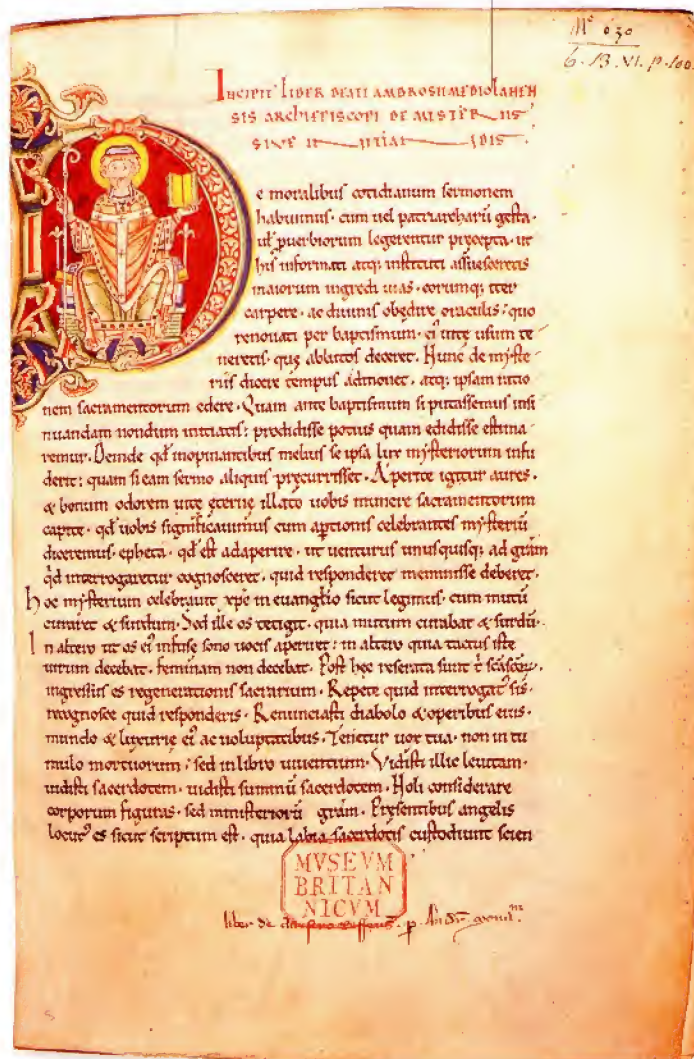 6. B. VI. p. 100.
INCIPIT LIBER BEATI AMBROSII MEDIOLANEN
SIS ARCHIEPISCOPI DE MISTERIIS
SIVE INITIANDIS.
De moralibus cotidianum sermonem
habuimus. cum uel patriarcharū gesta.
uł puerbiorum legerentur precepta. ut
his informati atq; instituti assuesceretis
maiorum ingredi uias. eorumq; iter
carpere. ac diuinis obędire oraculis; quo
renouati per baptismum. ei uitę usum te
neretis. quę ablutos deceret. Hunc de myste
riis dicere tempus admonet. atq; ipsam ratio
nem sacramentorum edere. Quam ante baptismum si putassemus insi
nuandam nondum initiatis; prodidisse potius quam edidisse estima
remur. Deinde qđ inopinantibus melius se ipsa lux mysteriorum infu
derit; quam si eam sermo aliquis pręcurrisset. Aperite igitur aures.
& bonum odorem uitę ęternę illato uobis munere sacramentorum
capite. qđ uobis significauimus cum aptionis celebrantes mysteriū
diceremus. epheta. qđ est adaperire. ut uenturus unusquisq; ad grām
qd interrogaretur cognosceret. quid responderet meminisse deberet.
Hoc mysterium celebrauit xpc in euanglio sicut legimus. cum mutū
curaret & surdum. Sed ille os tetigit. quia mutum curabat & surdū.
In altero ut os ei infuse sono uocis aperiret; in altero quia tactus iste
uirum decebat. feminam non decebat. Post hęc reserata sunt t̄ scā scōꝝ.
ingressus es regenerationis sacrarium. Repete quid interrogat' sis.
recognosce quid responderis. Renunciasti diabolo & operibus eius.
mundo & luxurię ei ac uoluptatibus. Tenetur uox tua. non in tu
mulo mortuorum; sed in libro uiuentium. Vidisti illic leuitam.
uidisti sacerdotem. uidisti summū sacerdotem. Noli considerare
corporum figuras. sed ministeriorū grām. Presentibus angelis
locut' es sicut scriptum est. quia labia sacerdotis custodiunt scien
MVSEVM
BRITAN
NICVM
liber de claustro Roffensi. p.